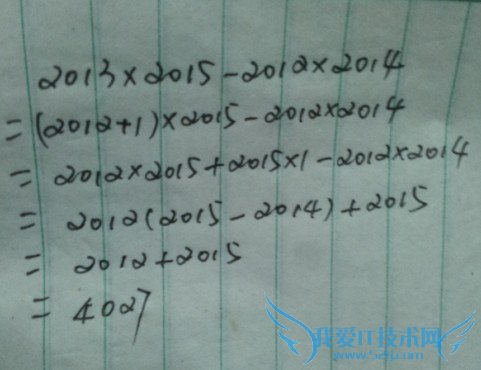 2013×2015-2012×2014
=(2012+1)×2015-2012×2014
= 2012×2015+2015×1-2012×2014
= 2012(2015-2014)+2015
= 2012+2015
= 4027
我爱IT技术网